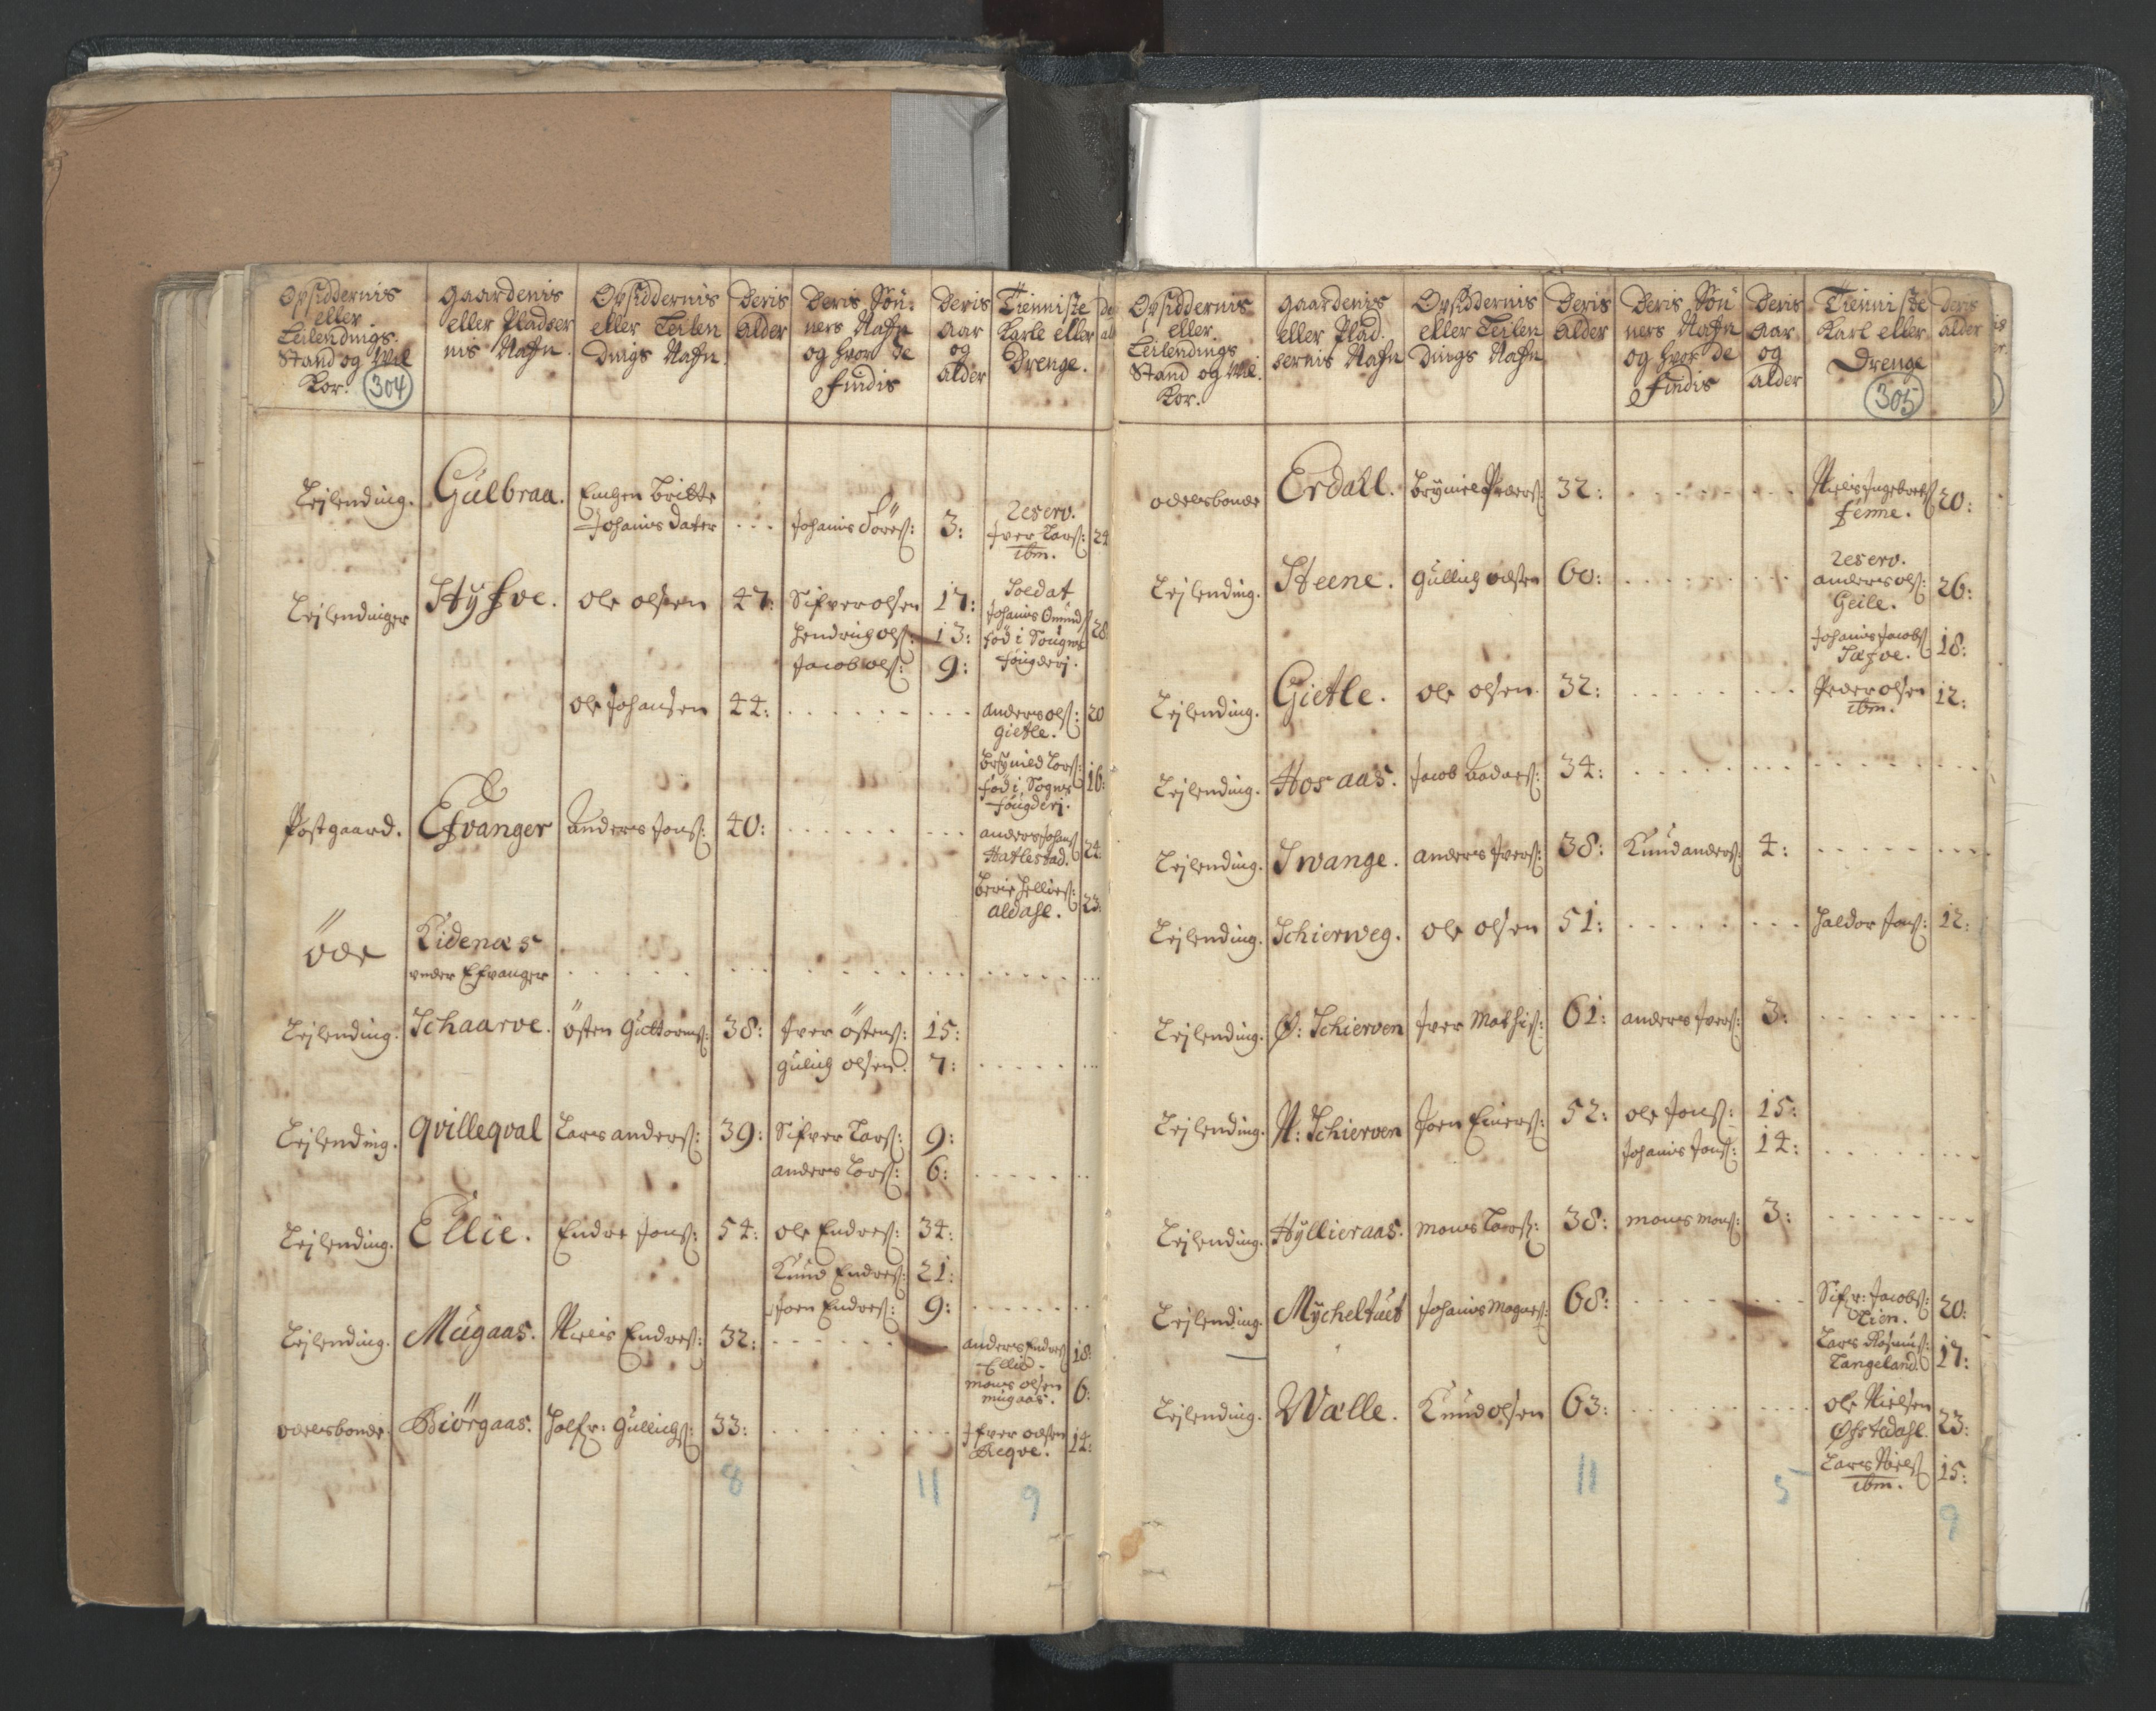 Opsiddernis eller Leilendings Stand og Wil Kor. 304
Gaardenis eller Pladser nis Nafn.
Opsiddernis eller Leilen dings Nafn.
Deris Alder
Deris Sön: ners Nafn og hvor de findis
Deris Aar og Alder
Tienniste Karle eller Drenge.
Lejlending. Gulbraa. Enchen Britte
Johanis dater ... Johanis Söres: 3: Reserv. Iver Lars: ibm. 24
Lejlendinger Hysve. Ole Olsen 47: Sifver Olsen 17: Soldat Johanis Omund föd i Sougne fougderj. 28
Hendrich Ols: 13:
Jacob Ols: 9:
Ole Johansen 44: Anders Ols: Gietle. 20
Brynild Lars: föd i Sogne fougderj. 16:
Postgaard. Efvanger Anders Jons: 40: Anders Johans Hatlestad. 24
Berie Hellies: Aldahl. 23:
Öde Kidenæs
under Efvanger
Lejlending. Schaarve. Östen Guttorms: 38: Iver Östens: 15:
Gulich Olsen. 7:
Lejlending. Qvilleqval Lars Anders: 39: Sifver Lars: 9:
Anders Lars: 6:
Lejlending. Ellie. Endre Jons: 54: Ole Endres: 34:
Knud Endres: 21:
Joen Endres: 9:
Lejlending. Mugaas. Niels Endres: 32: Anders Endres Ellie. 18:
Mons Olsen Mugaas. 6:
Odelsbonde: Biörgaas. Holfr: Gullichs: 33: Ifver Olsen Reqve. 14:
8 11 9
Opsiddernis eller Leilendings Stand og Wil. Kor.
Gaardenis eller Plad. sernis Nafn
Opsiddernis eller Leilen dings Nafn
Deris Alder
Deris Sön ners Nafn og hvor de findis
Deris Aar og Alder
Tienniste Karl eller Drenge 305
Deris Alder
Odelsbonde Erdall. Brynield Peders: 32: Niels Ingebrets Fenne. 20:
Lejlending. Heene. Gullich Olsen 60: Reserv. Anders Ols: Geile. 26:
Johanis Jacobs 18:
Lejlending. Gietle. Ole Olsen 32: Peder Olsen ibm. 12:
Lejlending. Hosaas. Jacob 34:
Lejlending. Swange. Anders Ivers: 38: Knud Anders: 4:
Lejlending. Schierweg. Ole Olsen 51: Haldor Jons: 12:
Lejlending. Ø: Schierven Iver Mathis: 61: Anders Ivers: 3:
Lejlending. N: Schierven Joen Einers: 52: Ole Jons: 15:
Johanis Jons: 14:
Lejlending. Hyllieraas. Mons Lars: 38: Mons Mons: 3:
Lejlending. Mycheltuet Johanis Magnes: 68: Sifr: Jacobs: Lien. 20:
Lars Rasmus: Tangeland. 17:
Lejlending. Wælle. Knud Olsen 63: Ole Nielsen Øfstedahl. 23:
Lars Niels ibm. 15:
11 5 9